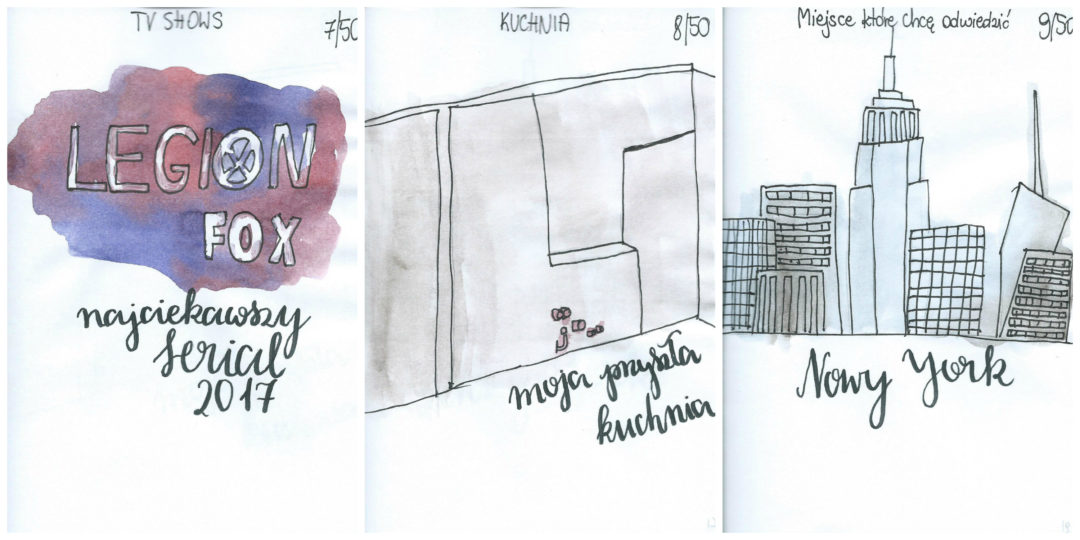 TV SHOWS
7/50
LEGION
FOX
najciekawszy
serial
2017
KUCHNIA
8/50
moja przyszła
kuchnia
Miejsce które chcę odwiedzić
9/50
Nowy York